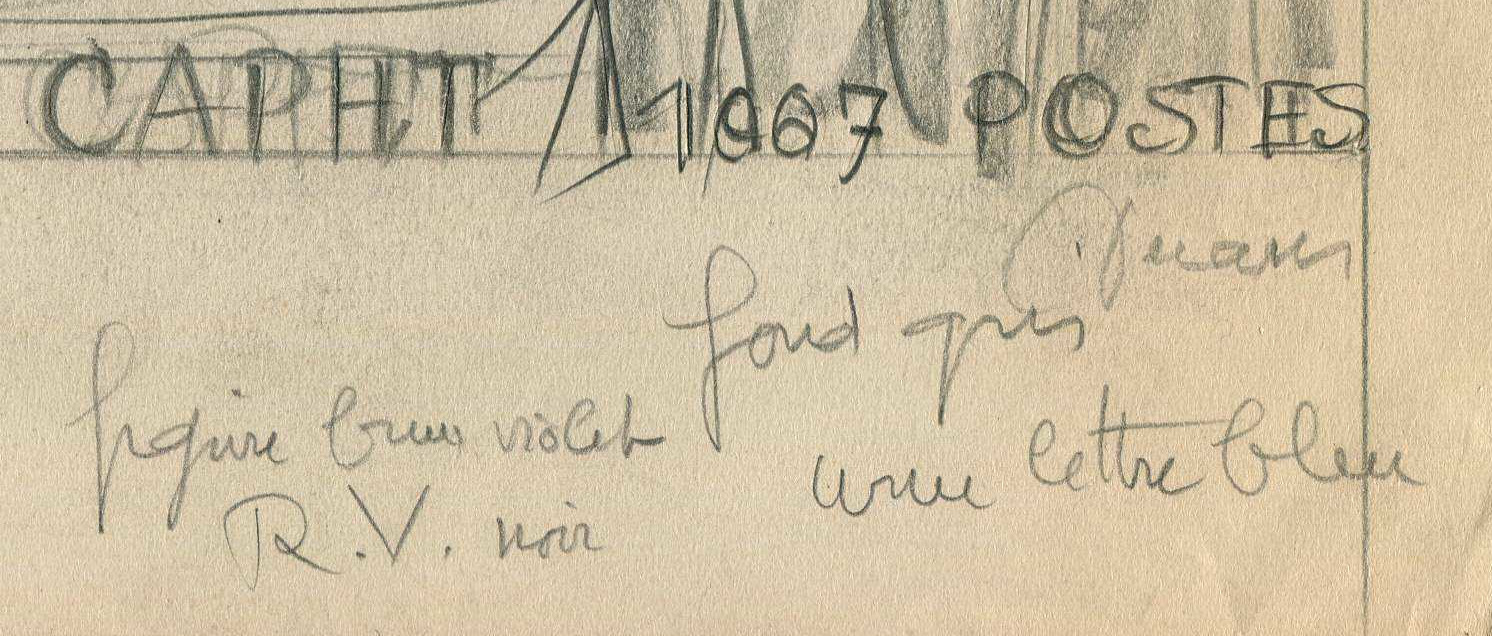 CAPHT 1967 POSTES
fond gris
figure brun violet
urne lettre bleu
R.V. noir